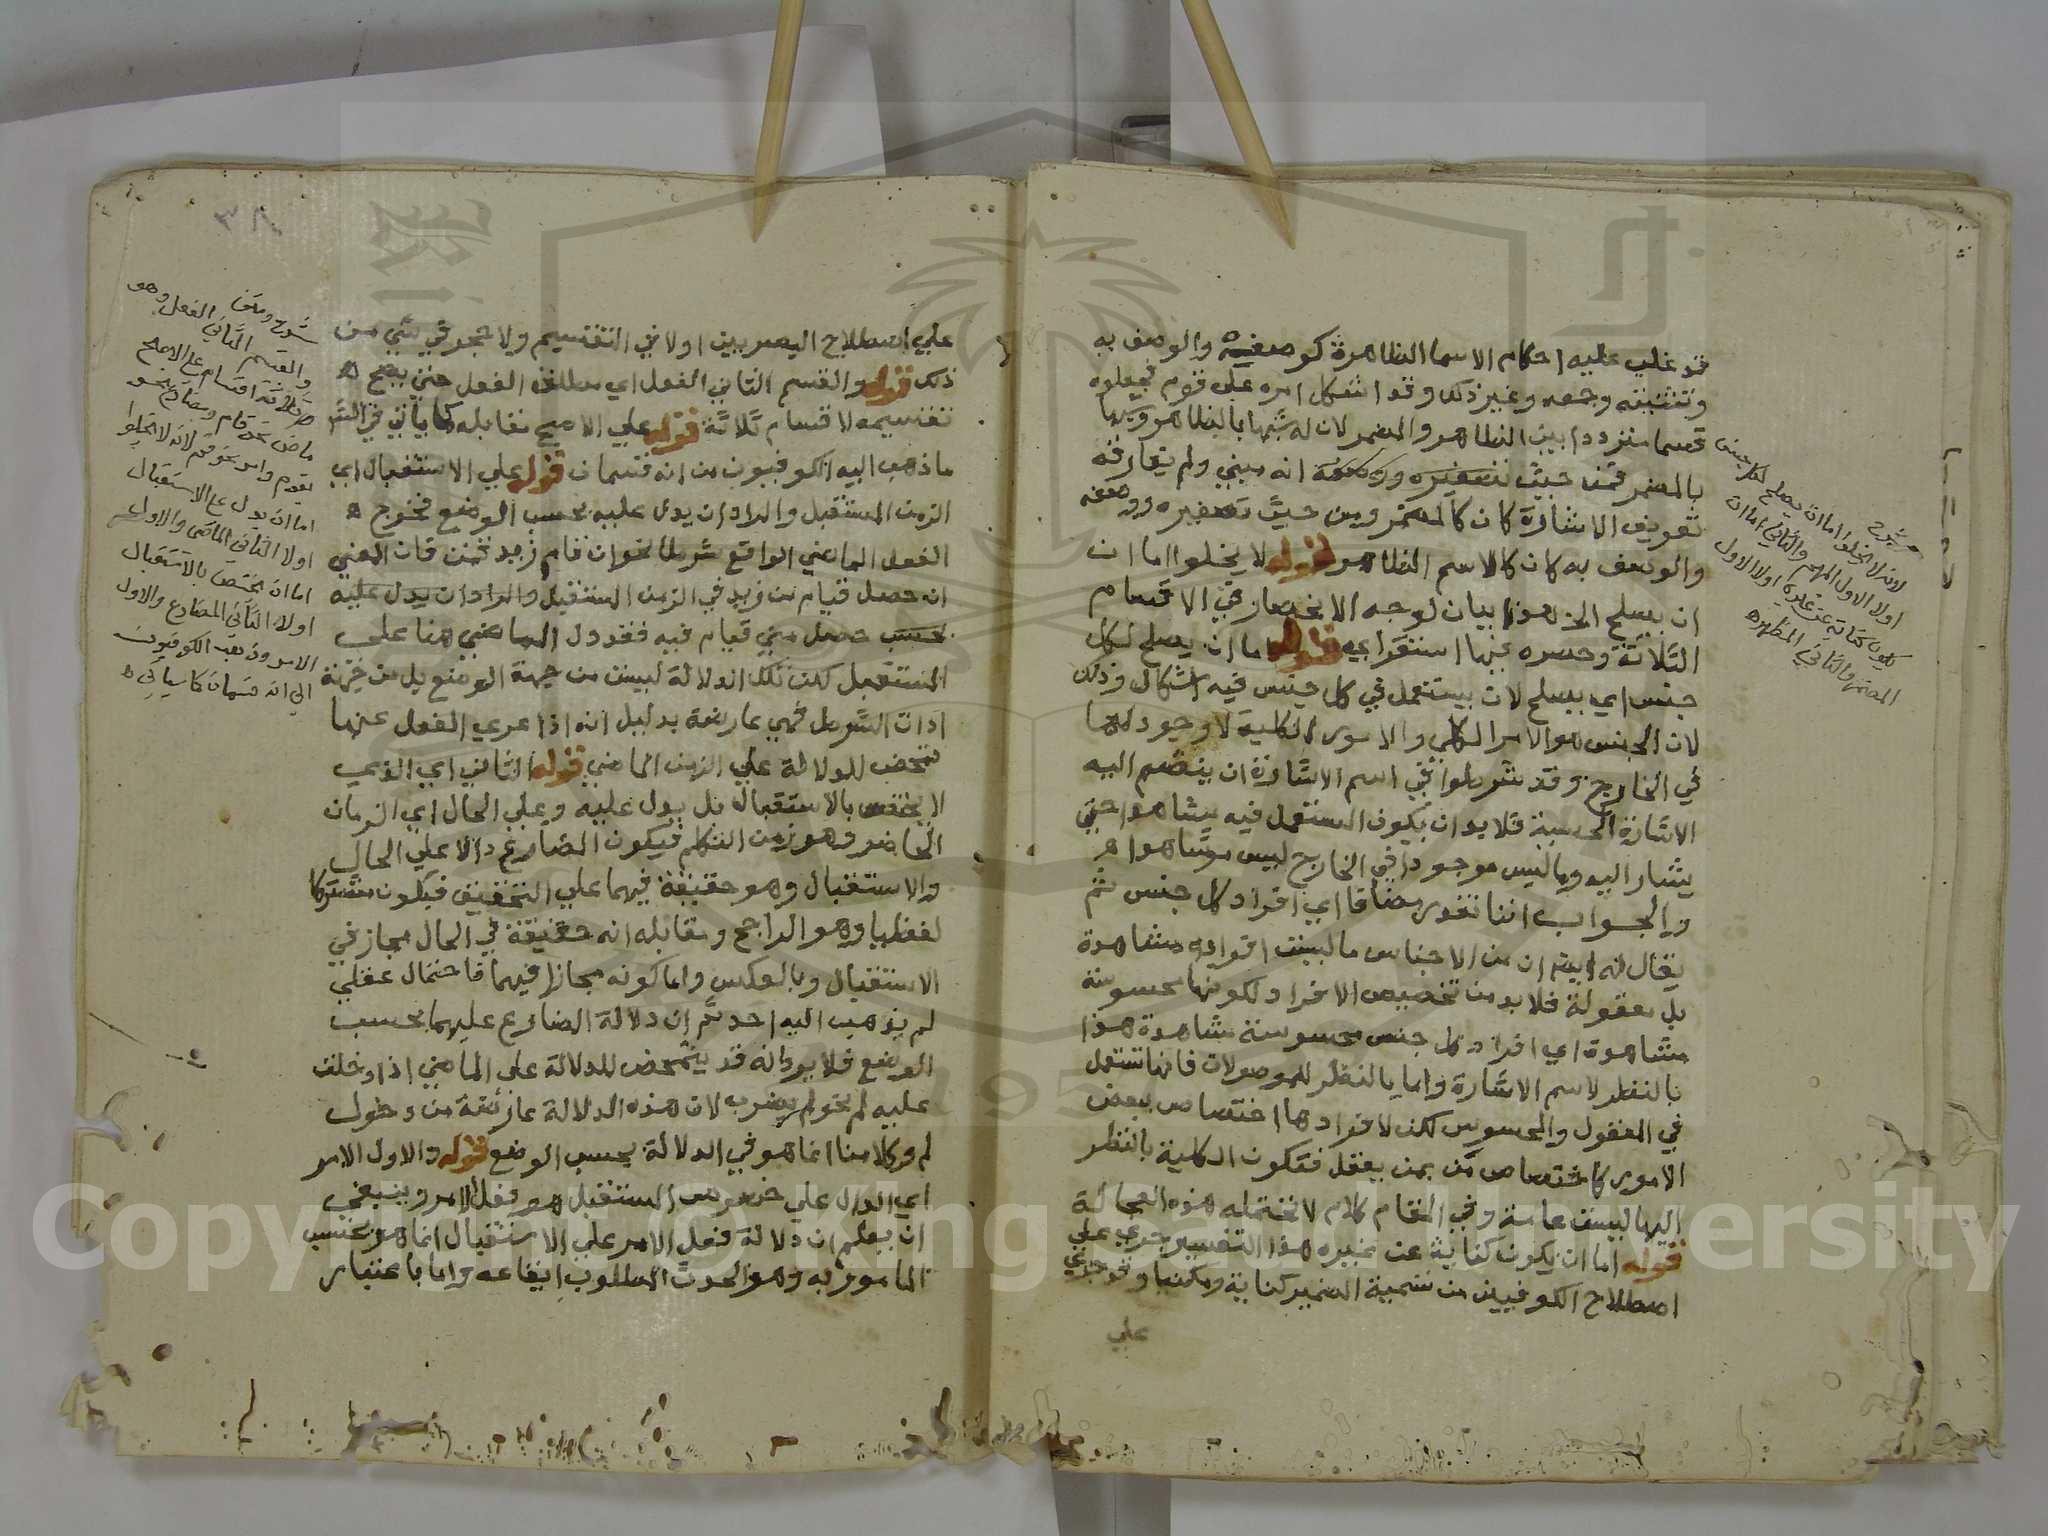 قد غلب عليه احكام الاسما الظاهرة كوصفه والوصف به
وتثنيته وجمعه وغير ذلك وقد اشكل امره على قوم فجعلوه
قسما مترددا بين الظاهر والمضمر لان له شبها بالظاهر وشبها
بالمضمر فمن حيث انه مبني ولم يفارقه
تعريف الاشارة كان كالمضمر ومن حيث تصغيره ووصفه
والوصف به كان كالاسم الظاهر قوله لا يخلوا اما ان
ان يصلح الخ هذا بيان لوجه الانحصار في الاقسام
الثلاثة وحصره فيها استقراي قوله اما ان يصلح لكل
جنس اي يصلح لان يستعمل في كل جنس فيه اشكال وذلك
لان الجنس هو الامر الكلي والامور الكلية لا وجود لها
في الخارج وقد شرطوا في اسم الاشارة ان ينضم اليه
الاشارة الحسية فلا بد ان يكون المستعمل فيه مشاهدا حتى
يشار اليه وما ليس موجودا في الخارج ليس مشاهدا
والجواب اننا نقدر مضافا اي افراد كل جنس ثم
يقال انه ان من الاجناس ما ليست افراده مشاهدة
بل معقولة فلا بد من تخصيص الافراد لكونها محسوسة
مشاهدة اي افراد كل جنس محسوسة مشاهدة هذا
بالنظر لاسم الاشارة واما بالنظر للموصولات فانها تستعمل
في المعقول والمحسوس لكن لافرادها اختصاص ببعض
الامور كاختصاص من بمن يعقل فتكون الكلية بالنظر
اليها ليست عامة وفي المقام كلام لا تحتمله هذه العجالة
قوله اما ان يكون كناية عن غيره هذا التفسير جري علي
اصطلاح الكوفيين من تسمية الضمير كناية ومكنيا وقد جري
علي
شرح
لانه لا يخلوا اما ان يصلح لكل جنس
اولا الاول المبهم والثاني اما ان
يكون كناية عن غيره اولا الاول
المضمر والثاني المظهر
٣٨
علي اصطلاح البصريين اولا في التقسيم ولا حجر في شي من
ذلك قوله والقسم الثاني الفعل اي مطلق الفعل حتي يصح
تقسيمه لاقسام ثلاثة قوله علي الاصح مقابله كما ياتي في الشرح
ما ذهب اليه الكوفيون من انه قسمان قوله علي الاستقبال اي
الزمن المستقبل والمراد ان يدل عليه بحسب الوضع فخرج
الفعل الماضي الواقع شرطا نحو ان قام زيد قمت فان المعني
ان حصل قيام من زيد في الزمن المستقبل والمراد ان يدل عليه
بحسب حصل مني قيام فيه فقد دل الماضي هنا على
المستقبل لكن تلك الدلالة ليست من جهة الوضع بل من قرينة
ادات الشرط فهي عارضة بدليل انه اذا عري الفعل عنها
تمحض للدلالة علي الزمن الماضي قوله الثاني اي الذي
لا يختص بالاستقبال بل يدل عليه وعلي الحال اي الزمان
الحاضر وهو زمن التكلم فيكون المضارع دالا علي الحال
والاستقبال وهو حقيقة فيهما علي التحقيق فيكون مشتركا
لفظيا وهو الراجح ومقابله انه حقيقة في الحال مجاز في
الاستقبال وبالعكس واما كونه مجازا فيهما فاحتمال عقلي
لم يذهب اليه احد ثم ان دلالة المضارع عليهما بحسب
الوضع فلا يرد انه قد يتمحض للدلالة على الماضي اذا دخلت
عليه لم نحو لم يضرب لان هذه الدلالة عارضة من دخول
لم وكلامنا انما هو في الدلالة بحسب الوضع قوله والاول الامر
اي الدال علي خصوص المستقبل هو فعل الامر وينبغي
ان يعلم ان دلالة فعل الامر علي الاستقبال انما هو بحسب
المامور به وهو الحدث المطلوب ايقاعه واما باعتبار
شرح ومتن
والقسم الثاني الفعل وهو
ثلاثة اقسام على الاصح
ماض نحو قام ومضارع نحو
يقوم وامر نحو قم لانه لا يخلوا
اما ان يدل على الاستقبال
اولا الثاني الماضى والاول
اما ان يختص بالاستقبال
اولا الثاني المضارع والاول
الامر وذهب الكوفيون
الي انه قسمان كما سياتي
Copyright © King Saud University
1957